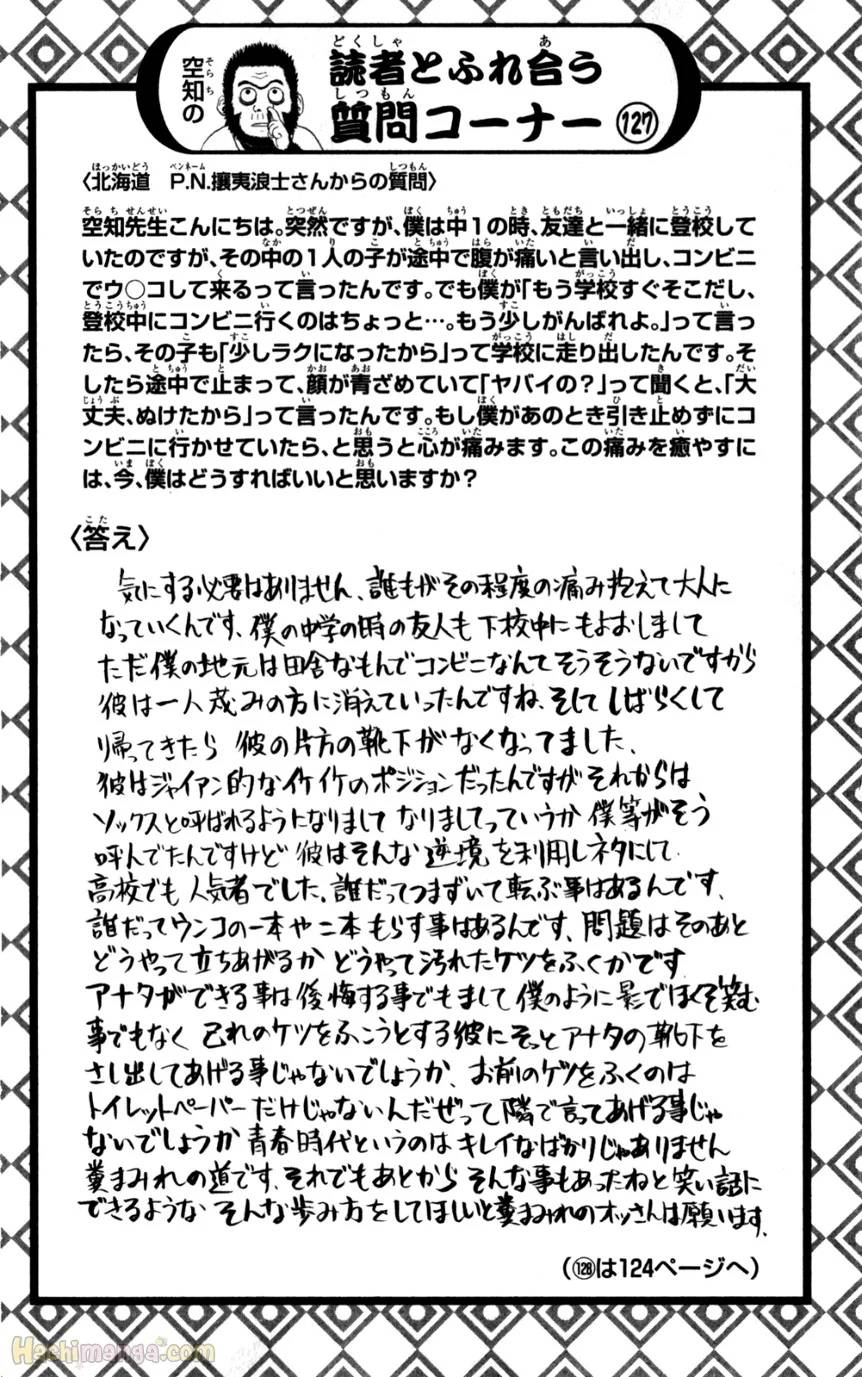 空知の 読者とふれ合う
質問コーナー 127
〈北海道 P.N.攘夷浪士さんからの質問〉
空知先生こんにちは。突然ですが、僕は中1の時、友達と一緒に登校して
いたのですが、その中の1人の子が途中で腹が痛いと言い出し、コンビニ
でウ〇コして来るって言ったんです。でも僕が「もう学校すぐそこだし、
登校中にコンビニ行くのはちょっと…。もう少しがんばれよ。」って言っ
たら、その子も「少しラクになったから」って学校に走り出したんです。そ
したら途中で止まって、顔が青ざめていて「ヤバイの？」って聞くと、「大
丈夫、ぬけたから」って言ったんです。もし僕があのとき引き止めずにコ
ンビニに行かせていたら、と思うと心が痛みます。この痛みを癒やすに
は、今、僕はどうすればいいと思いますか？
〈答え〉
気にする必要はありません、誰もがその程度の痛み抱えて大人に
なっていくんです、僕の中学の時の友人も下校中にもよおしまして
ただ僕の地元は田舎なもんでコンビニなんてそうそうないですから
彼は一人茂みの方に消えていったんですね、そして しばらくして
帰ってきたら 彼の片方の靴下がなくなってました、
彼はジャイアン的なイケイケのポジションだったんですが それからは
ソックスと呼ばれるようになりまして なりましてっていうか 僕等がそう
呼んでたんですけど 彼はそんな 逆境を利用しネタにして
高校でも人気者でした、誰だってつまずいて転ぶ事はあるんです、
誰だってウンコの一本や二本もらす事はあるんです、問題はそのあと
どうやって立ちあがるか どうやって汚れたケツをふくかです
アナタができる事は後悔する事でもまして僕のように影でほくそ笑む
事でもなく 己れのケツをふこうとする彼にそっとアナタの靴下を
さし出してあげる事じゃないでしょうか、お前のケツをふくのは
トイレットペーパーだけじゃないんだぜって隣で言ってあげる事じゃ
ないでしょうか 青春時代というのは キレイなばかりじゃありません
糞まみれの道です、それでもあとから そんな事もあったねと笑い話に
できるような そんな歩み方をしてほしいと糞まみれのオッさんは願います、
(128は124ページへ)
Hachimanga.com